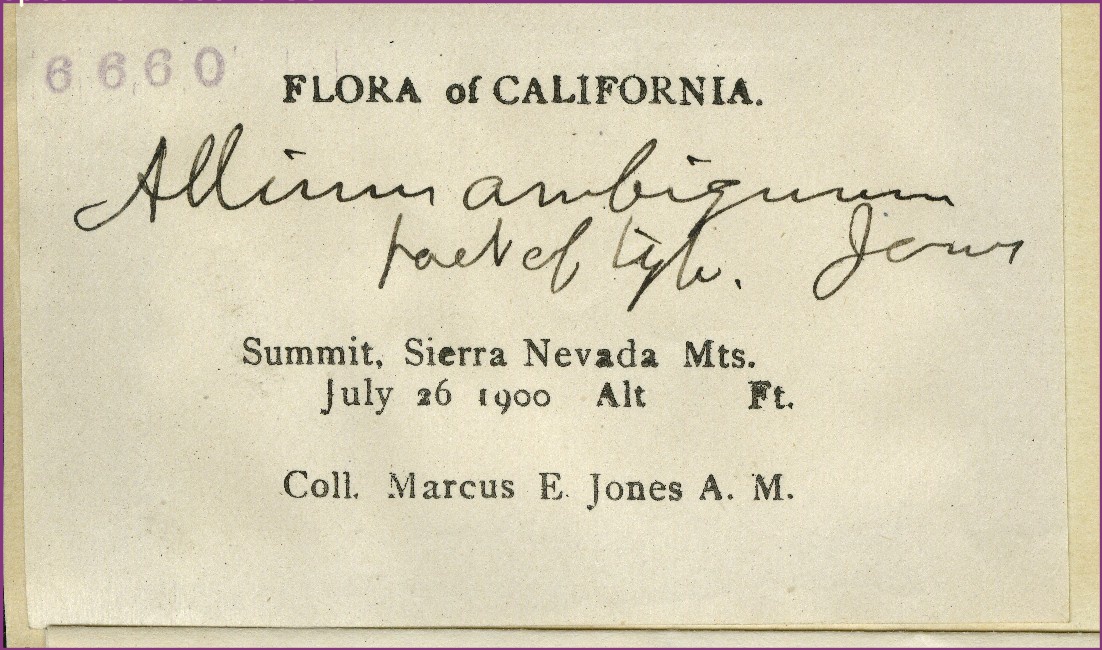 6660
FLORA of CALIFORNIA.
Allium ambiguum
part of type. Jones
Summit, Sierra Nevada Mts.
July 26 1900 Alt Ft.
Coll. Marcus E. Jones A. M.